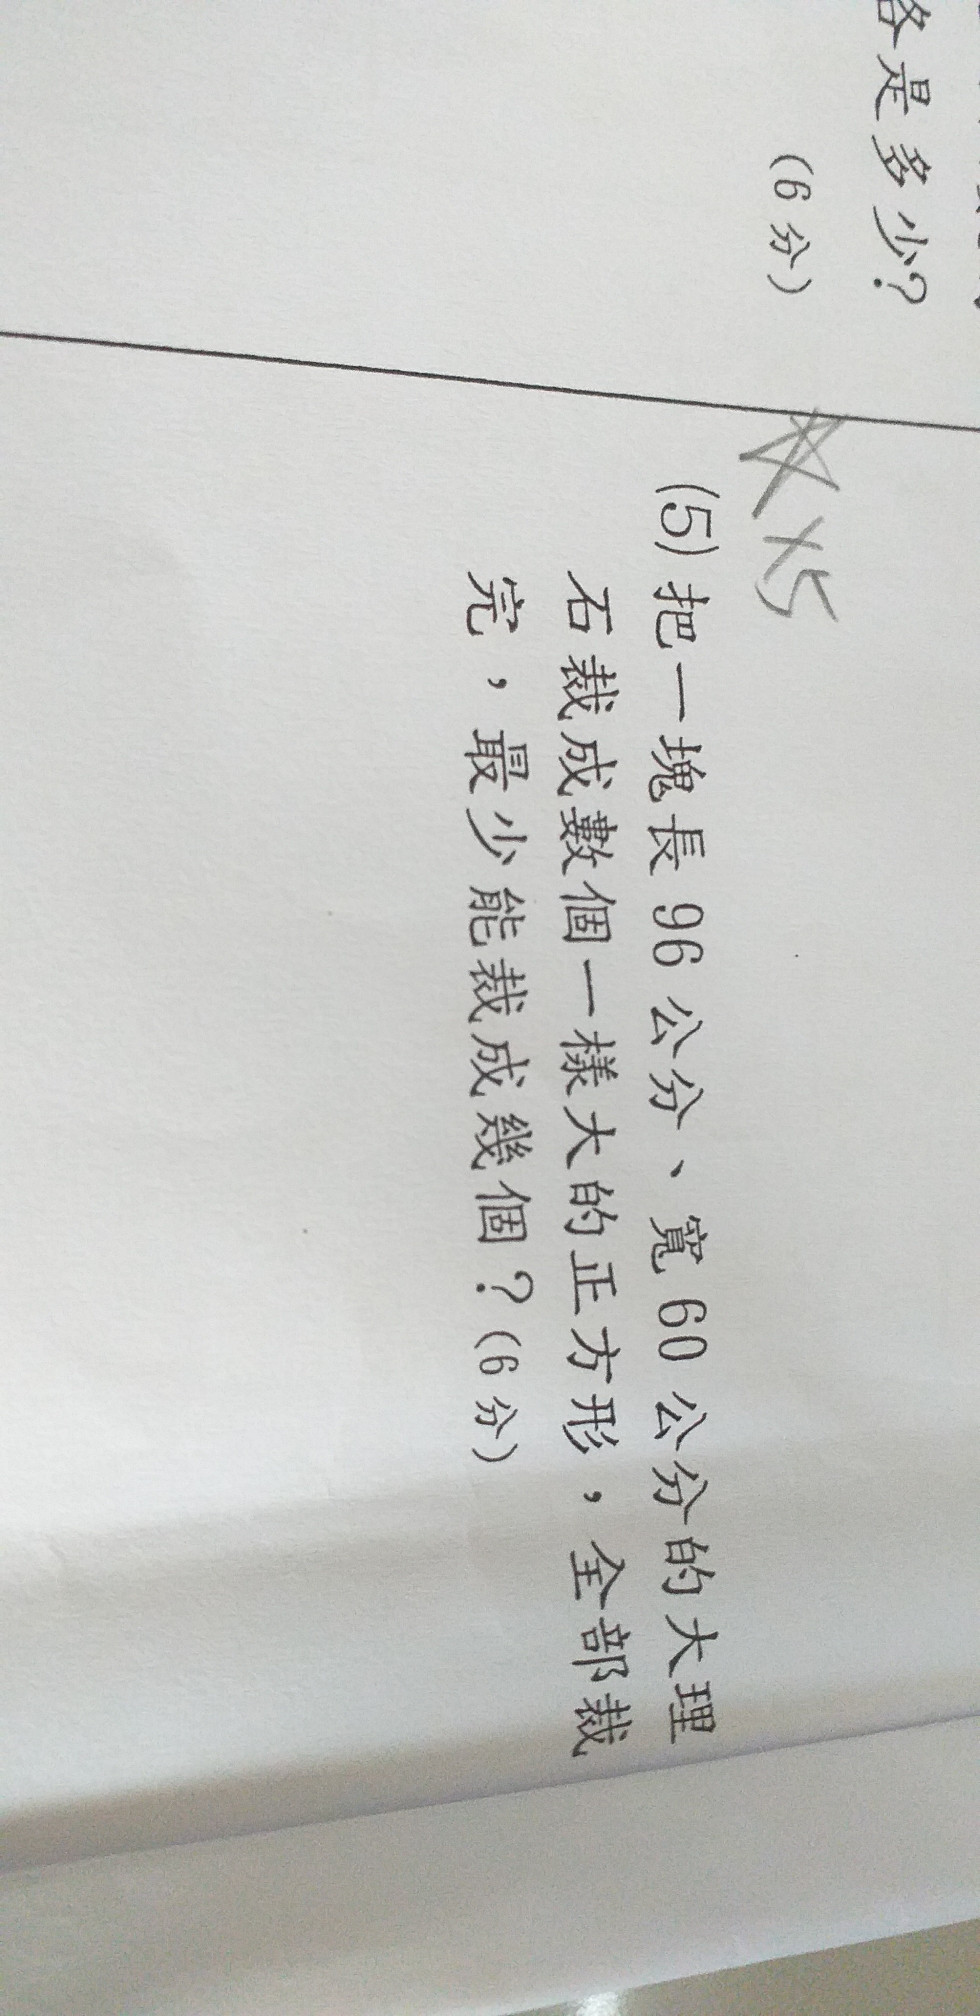 各是多少？
(6分)
×5
(5) 把一塊長 96 公分、寬 60 公分的大理
石裁成數個一樣大的正方形，全部裁
完，最少能裁成幾個？(6分)